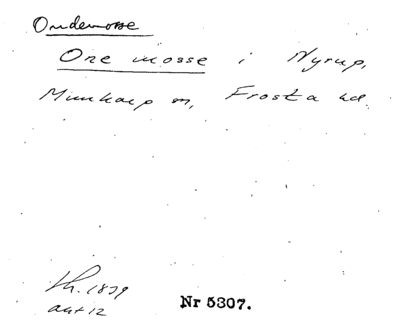 Ondemosse
One mosse i Nyrup,
Munkarp sn, Frosta hd.
Lh. 1839
akt 12
Nr 5307.